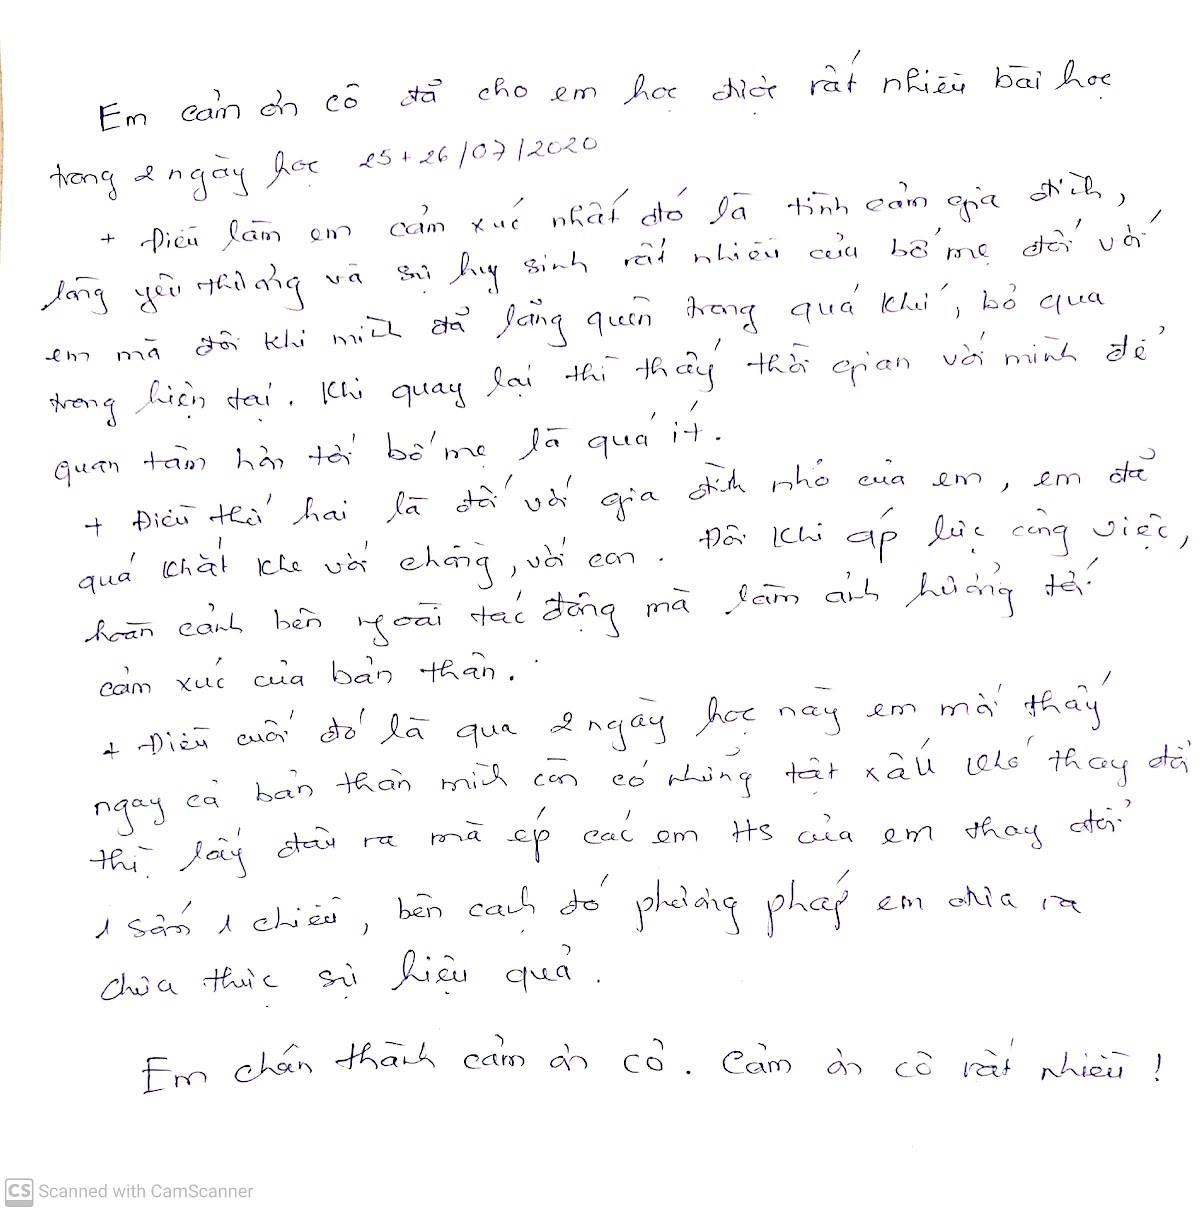 Em cảm ơn cô đã cho em học được rất nhiều bài học
trong 2 ngày học 25 + 26/07/2020
+ Điều làm em cảm xúc nhất đó là tình cảm gia đình,
lòng yêu thương và sự hy sinh rất nhiều của bố mẹ đối với
em mà đôi khi mình đã lãng quên trong quá khứ, bỏ qua
trong hiện tại. Khi quay lại thì thấy thời gian với mình để
quan tâm hơn tới bố mẹ là quá ít.
+ Điều thứ hai là đối với gia đình nhỏ của em, em đã
quá khắt khe với chồng, với con. Đôi khi áp lực công việc,
hoàn cảnh bên ngoài tác động mà làm ảnh hưởng tới
cảm xúc của bản thân.
+ Điều cuối đó là qua 2 ngày học này em mới thấy
ngay cả bản thân mình còn có những tật xấu khó thay đổi
thì lấy đâu ra mà ép các em HS của em thay đổi
1 sớm 1 chiều, bên cạnh đó phương pháp em đưa ra
chưa thực sự hiệu quả.
Em chân thành cảm ơn cô. Cảm ơn cô rất nhiều!
CS Scanned with CamScanner